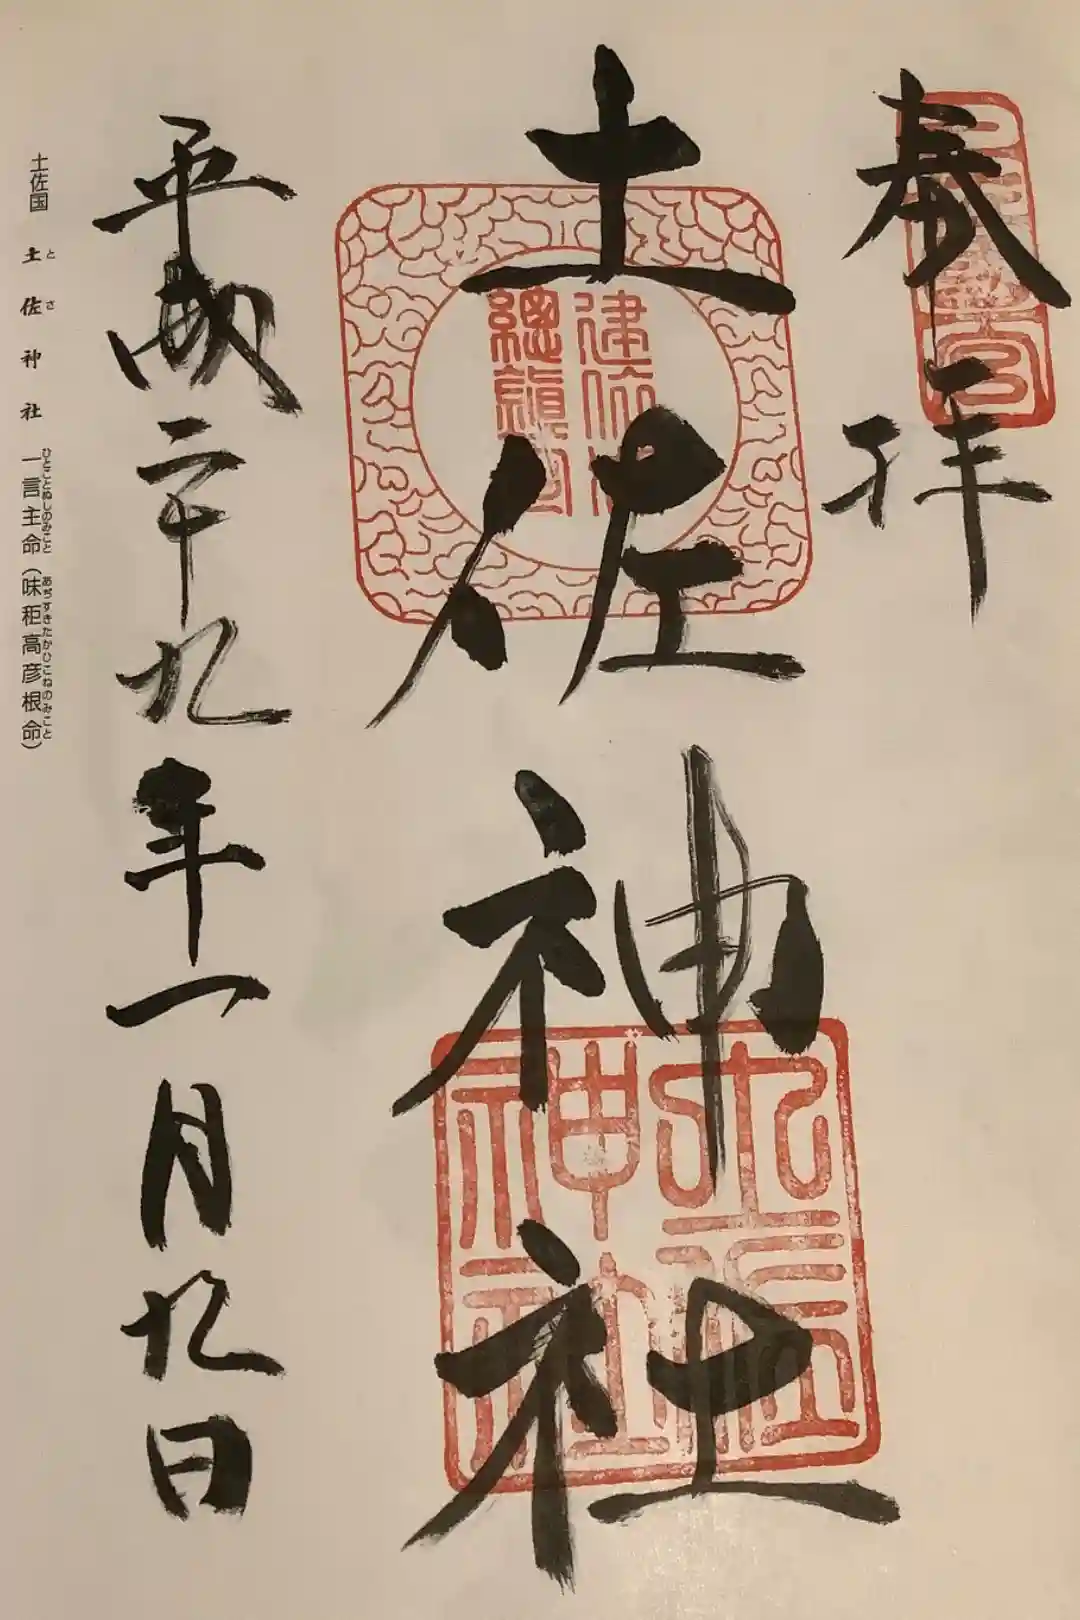 奉拝
土佐神社
平成二十九年一月九日
土佐国 土佐神社 一言主命(味秬高彦根命)
とさ
ひとことぬしのみこと
あぢすきたかひこねのみこと
土佐神社